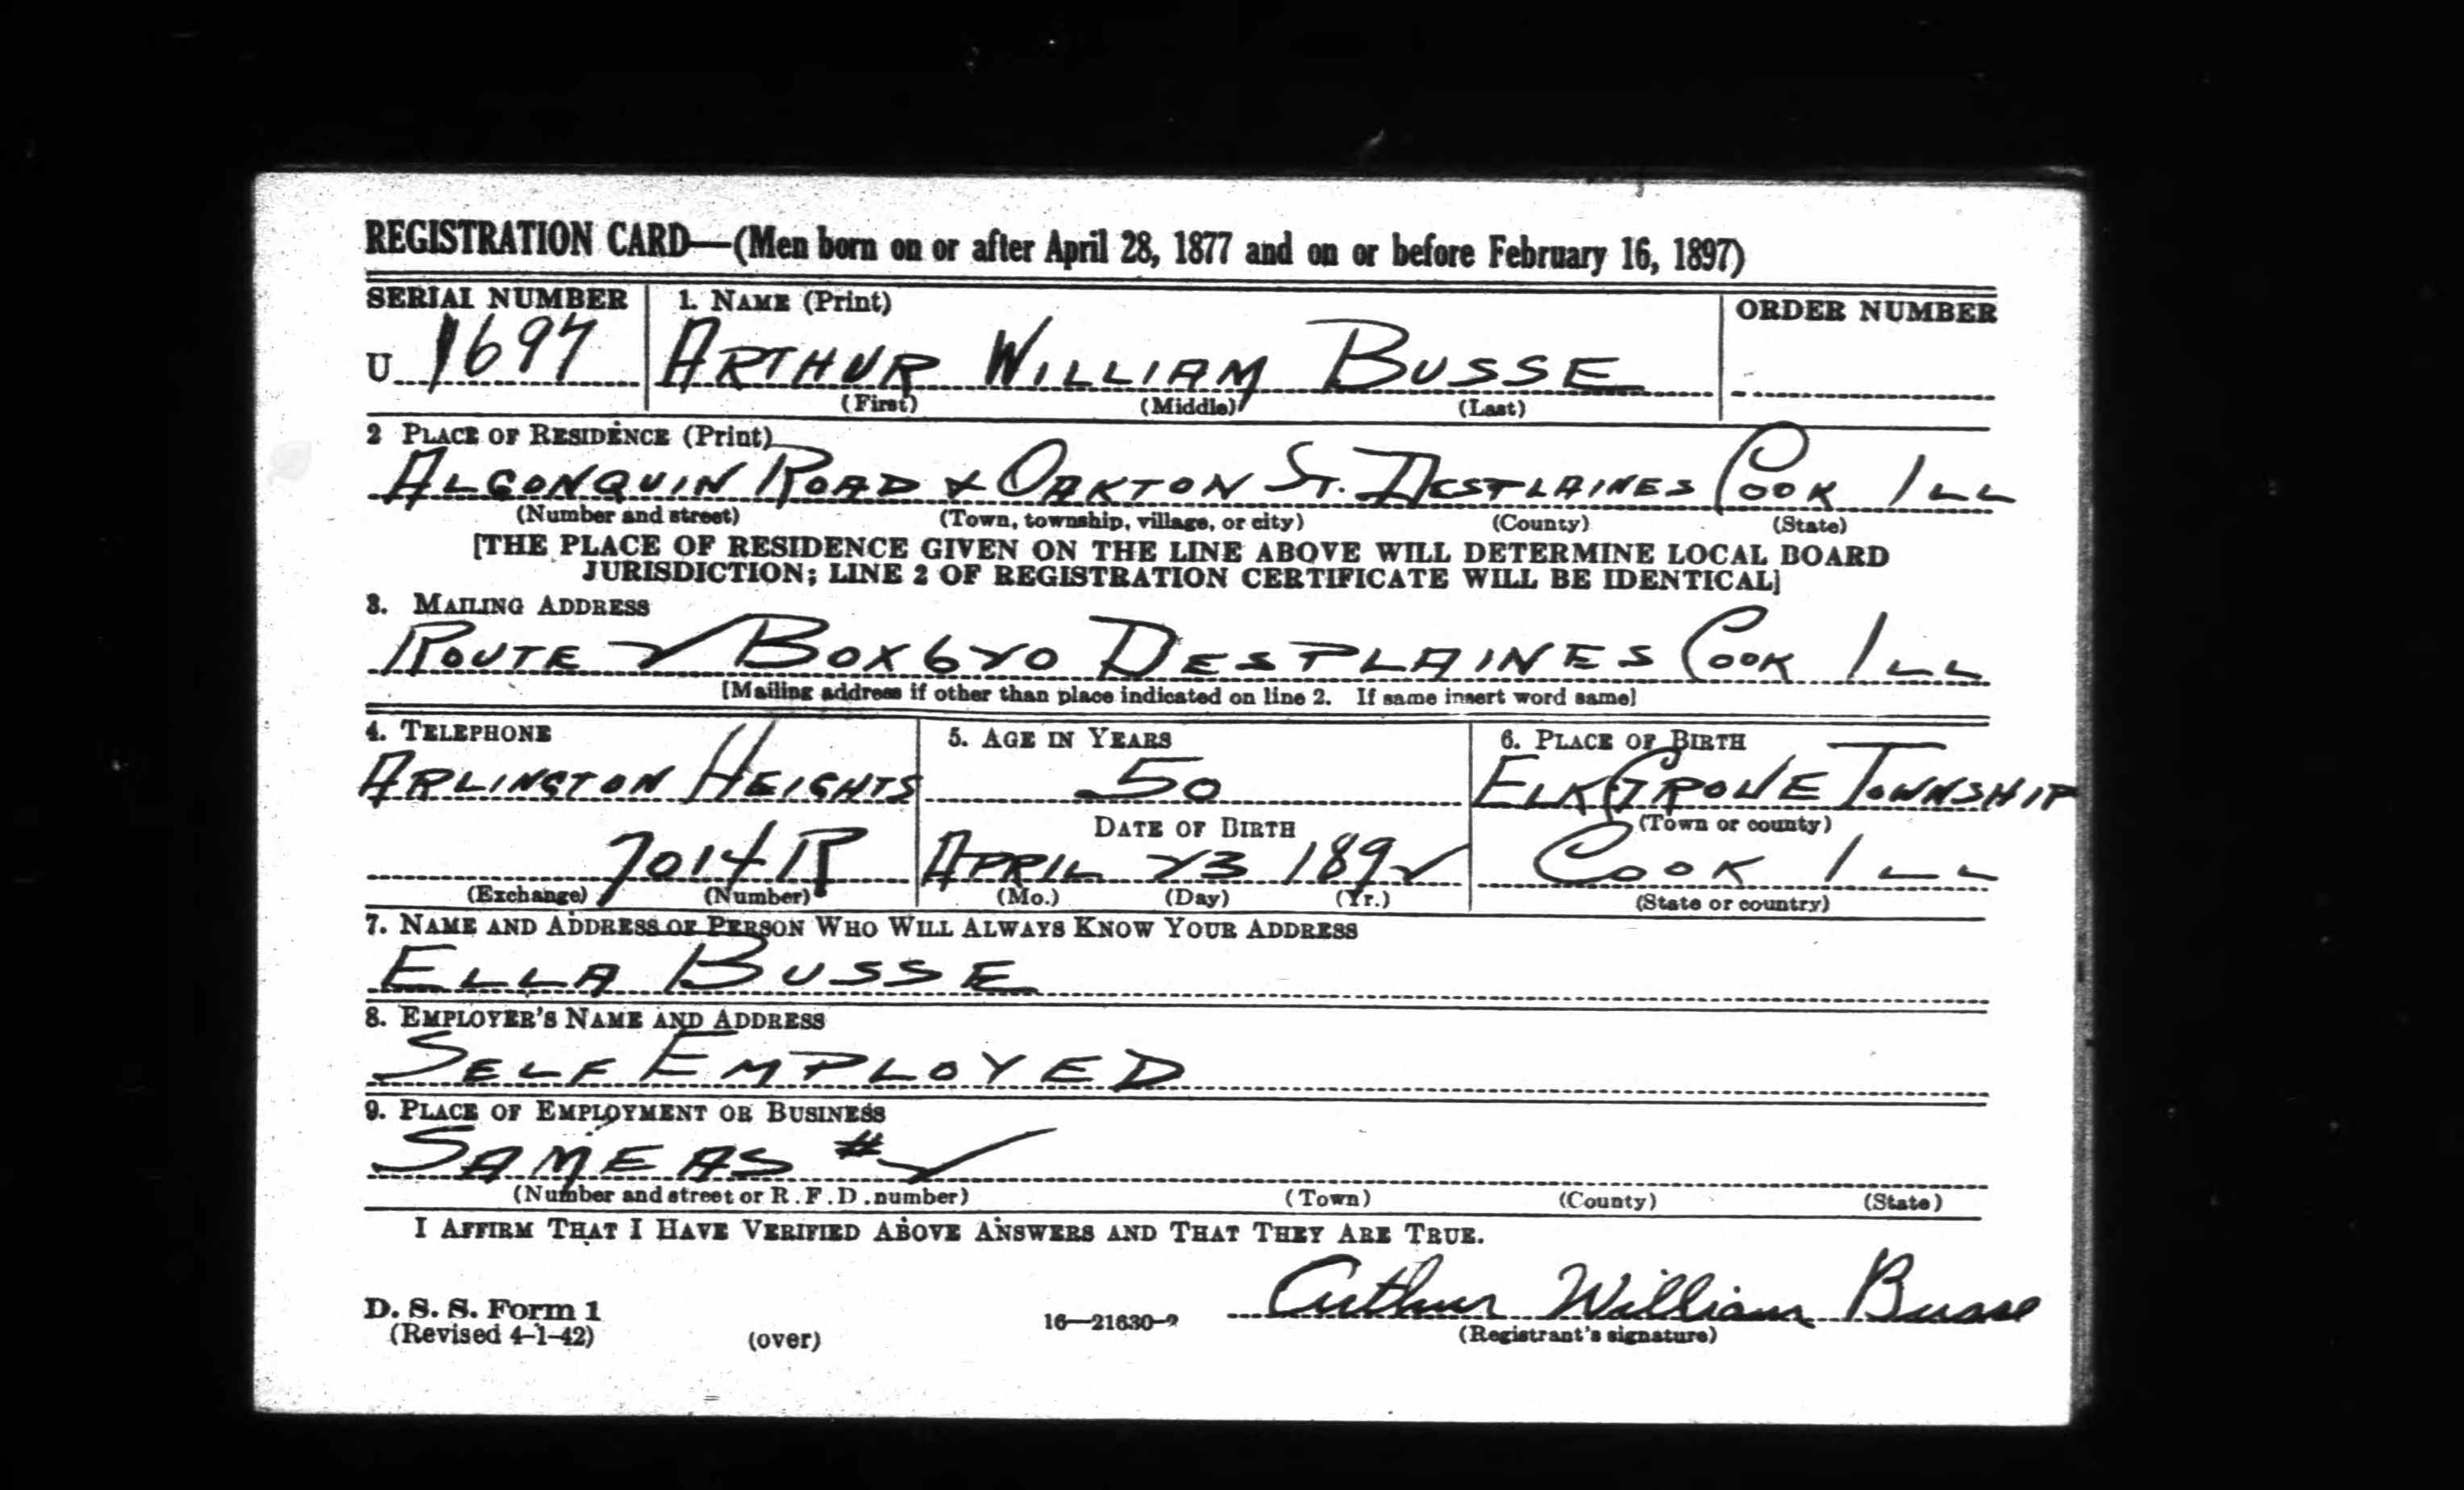 REGISTRATION CARD—(Men born on or after April 28, 1877 and on or before February 16, 1897)
SERIAL NUMBER 1. NAME (Print) ORDER NUMBER
U 1697 ARTHUR WILLIAM BUSSE
(First) (Middle) (Last)
2 PLACE OF RESIDENCE (Print)
ALGONQUIN ROAD & OAKTON ST. DESPLAINES COOK ILL
(Number and street) (Town, township, village, or city) (County) (State)
[THE PLACE OF RESIDENCE GIVEN ON THE LINE ABOVE WILL DETERMINE LOCAL BOARD
JURISDICTION; LINE 2 OF REGISTRATION CERTIFICATE WILL BE IDENTICAL]
3. MAILING ADDRESS
ROUTE 2 BOX 620 DESPLAINES COOK ILL
[Mailing address if other than place indicated on line 2. If same insert word same]
4. TELEPHONE 5. AGE IN YEARS 6. PLACE OF BIRTH
ARLINGTON HEIGHTS 50 ELK GROVE TOWNSHIP
DATE OF BIRTH (Town or county)
7014 R APRIL 23 1892 COOK ILL
(Exchange) (Number) (Mo.) (Day) (Yr.) (State or country)
7. NAME AND ADDRESS OF PERSON WHO WILL ALWAYS KNOW YOUR ADDRESS
ELLA BUSSE
8. EMPLOYER'S NAME AND ADDRESS
SELF EMPLOYED
9. PLACE OF EMPLOYMENT OR BUSINESS
SAME AS #2
(Number and street or R.F.D. number) (Town) (County) (State)
I AFFIRM THAT I HAVE VERIFIED ABOVE ANSWERS AND THAT THEY ARE TRUE.
Arthur William Busse
D. S. S. Form 1
(Revised 4-1-42) (over) 16—21630-2 (Registrant's signature)